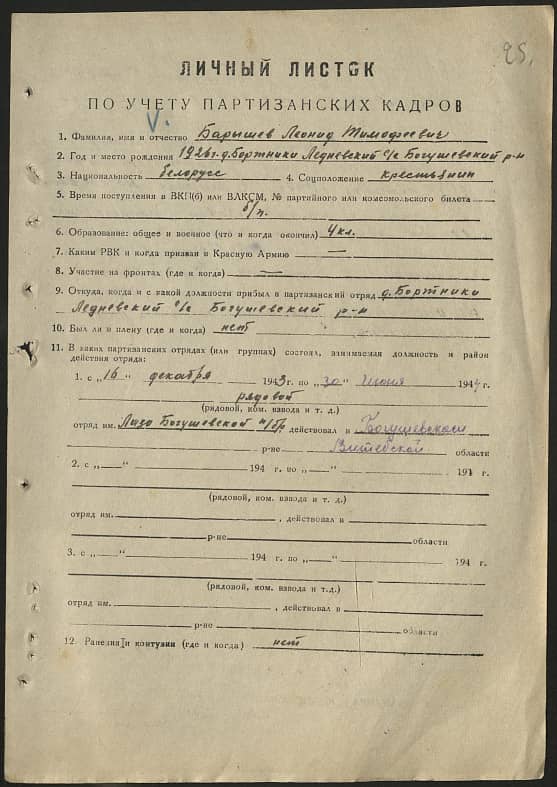 25.
ЛИЧНЫЙ ЛИСТОК
ПО УЧЕТУ ПАРТИЗАНСКИХ КАДРОВ
V.
1. Фамилия, имя и отчество Барышев Леонид Тимофеевич
2. Год и место рождения 1926г. д. Бортники Ледневский с/с Богушевский р-н
3. Национальность белорусс 4. Соцположение крестьянин
5. Время поступления в ВКП(б) или ВЛКСМ, № партийного или комсомольского билета —
б/п.
6. Образование: общее и военное (что и когда окончил) 4 кл.
7. Каким РВК и когда призван в Красную Армию —
8. Участие на фронтах (где и когда) —
9. Откуда, когда и с какой должности прибыл в партизанский отряд д. Бортники
Ледневский с/с Богушевский р-н
10. Был ли в плену (где и когда) нет
11. В каких партизанских отрядах (или группах) состоял, занимаемая должность и район
действия отряда:
1. с „16" декабря 1943г. по „30" июня 1944г.
рядовой
(рядовой, ком. взвода и т. д.)
отряд им. Лазо Богушевской п/бр, действовал в Богушевском
р-не Витебской области
2. с „—" 194 г. по „—" 194 г.
(рядовой, ком. взвода и т. д.)
отряд им. , действовал в
р-не области
3. с „—" 194 г. по „—" 194 г.
(рядовой, ком. взвода и т.д.)
отряд им. , действовал в
р-не области
12. Ранения и контузии (где и когда) нет